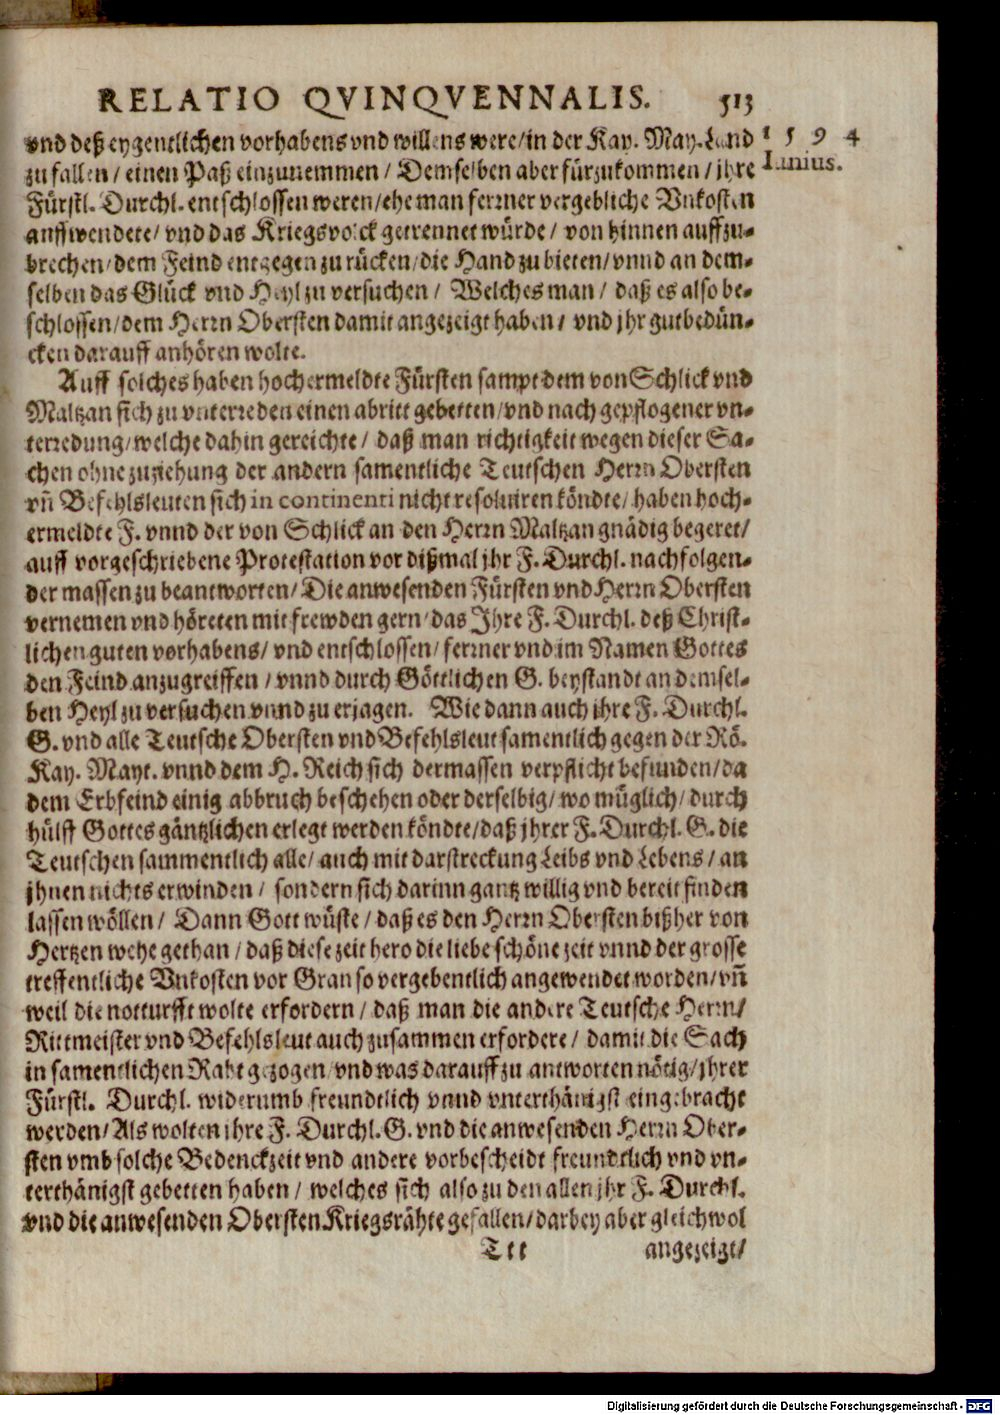 RELATIO QVINQVENNALIS. 513
vnd deß eygentlichen vorhabens vnd willens were/in der Kay. May. Land
1594
zu fallen/ einen Paß einzunemmen/ Demselben aber fürzukommen/ jhre
Iunius.
Fürstl. Durchl. entschlossen weren/ehe man ferrner vergebliche Vnkosten
auffwendete/ vnd das Kriegsvolck getrennet würde/ von hinnen auffzu-
brechen/dem Feind entgegen zu rücken/die Hand zu bieten/vnnd an dem-
selben das Glück vnd Heyl zu versuchen/ Welches man/ daß es also be-
schlossen/dem Herrn Obersten damit angezeigt haben/ vnd jhr gutbedün-
cken darauff anhören wolte.
Auff solches haben hochermeldte Fürsten sampt dem von Schlick vnd
Maltzan sich zu vnterreden einen abritt gebetten/vnd nach gepflogener vn-
terredung/welche dahin gereichte/ daß man richtigkeit wegen dieser Sa-
chen ohne zuziehung der andern samentliche Teutschen Herrn Obersten
vñ Befehlsleuten sich in continenti nicht resoluiren köndte/haben hoch-
ermeldte F. vnnd der von Schlick an den Herrn Maltzan gnädig begeret/
auff vorgeschriebene Protestation vor dißmal jhr F. Durchl. nachfolgen-
der massen zu beantworten/ Die anwesenden Fürsten vnd Herrn Obersten
vernemen vnd höreten mit frewden gern/das Jhre F. Durchl. deß Christ-
lichen guten vorhabens/ vnd entschlossen/ferrner vnd im Namen Gottes
den Feind anzugreiffen/ vnnd durch Göttlichen G. beystandt an demsel-
ben Heyl zu versuchen vnnd zu erjagen. Wie dann auch jhre F. Durchl.
G. vnd alle Teutsche Obersten vnd Befehlsleut samentlich gegen der Rö.
Kay. Mayt. vnnd dem H. Reich sich dermassen verpflicht befunden/da
dem Erbfeind einig abbruch beschehen oder derselbig/wo müglich/durch
hülff Gottes gäntzlichen erlegt werden köndte/daß jhrer F. Durchl. G. die
Teutschen sammentlich alle/ auch mit darstreckung Leibs vnd Lebens/ an
jhnen nichts erwinden/ sondern sich darinn gantz willig vnd bereit finden
lassen wöllen/ Dann Gott wüste/ daß es den Herrn Obersten bißher von
Hertzen wehe gethan/ daß diese zeit hero die liebe schöne zeit vnnd der grosse
treffentliche Vnkosten vor Gran so vergebentlich angewendet worden/vñ
weil die notturfft wolte erfordern/ daß man die andere Teutsche Herrn/
Rittmeister vnd Befehlsleut auch zusammen erfordere/ damit die Sach
in samentlichen Raht gezogen/vnd was darauff zu antworten nötig/jhrer
Fürstl. Durchl. widerumb freundtlich vnnd vnterthänigst eingebracht
werden/Als wolten jhre F. Durchl. G. vnd die anwesenden Herrn Ober-
sten vmb solche Bedenckzeit vnd andere vorbescheidt freundtlich vnd vn-
terthänigst gebetten haben/ welches sich also zu den allen jhr F. Durchl.
vnd die anwesenden Obersten Kriegsrähte gefallen/darbey aber gleichwol
Ttt angezeigt/
Digitalisierung gefördert durch die Deutsche Forschungsgemeinschaft - DFG